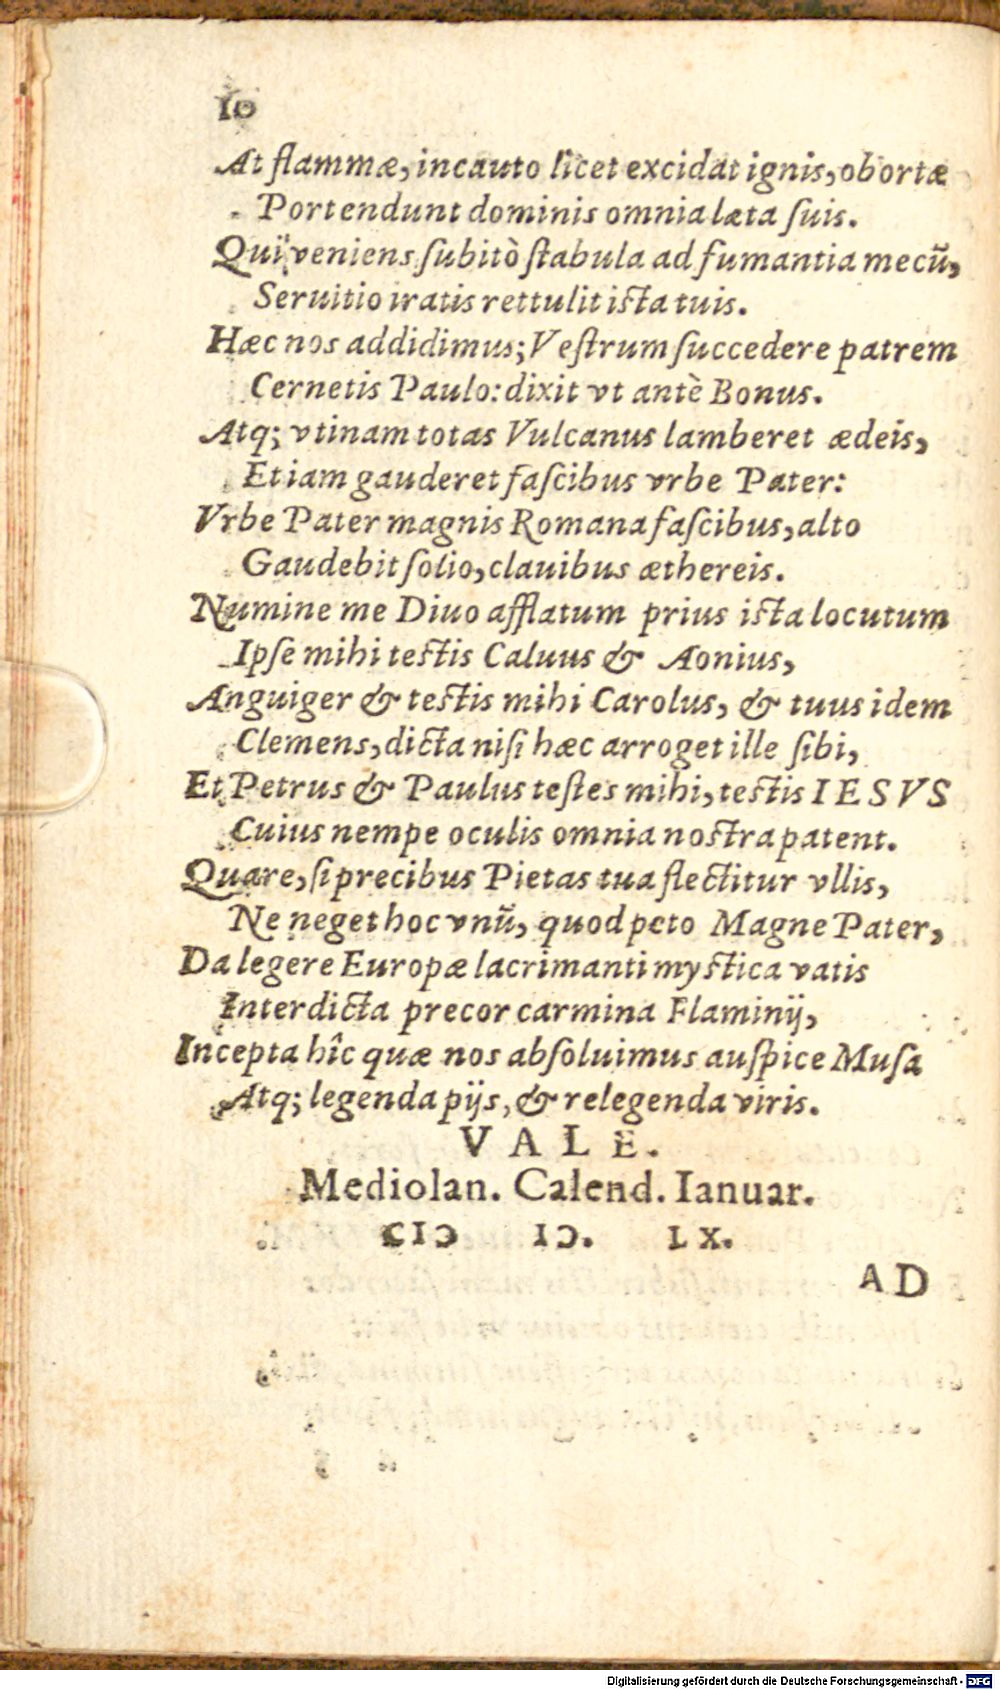 10
At flammæ, incauto licet excidat ignis, obortæ
Portendunt dominis omnia læta ſuis.
Qui veniens ſubitò ſtabula ad fumantia mecũ,
Seruitio iratis rettulit iſta tuis.
Hæc nos addidimus; Veſtrum ſuccedere patrem
Cernetis Paulo: dixit vt antè Bonus.
Atq; vtinam totas Vulcanus lamberet ædeis,
Et iam gauderet faſcibus vrbe Pater:
Vrbe Pater magnis Romana faſcibus, alto
Gaudebit ſolio, clauibus æthereis.
Numine me Diuo afflatum prius iſta locutum
Ipſe mihi teſtis Caluus & Aonius,
Anguiger & teſtis mihi Carolus, & tuus idem
Clemens, dicta niſi hæc arroget ille ſibi,
Et Petrus & Paulus teſtes mihi, teſtis IESVS
Cuius nempe oculis omnia noſtra patent.
Quare, ſi precibus Pietas tua flectitur vllis,
Ne neget hoc vnũ, quod peto Magne Pater,
Da legere Europæ lacrimanti myſtica vatis
Interdicta precor carmina Flaminij,
Incepta hîc quæ nos abſoluimus auſpice Muſa
Atq; legenda pijs, & relegenda viris.
VALE.
Mediolan. Calend. Ianuar.
CIƆ IƆ. LX.
AD
Digitalisierung gefördert durch die Deutsche Forschungsgemeinschaft - DFG